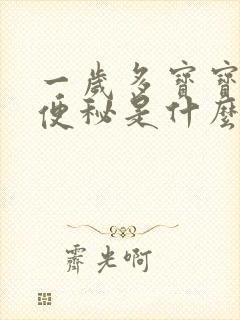 一歲多寶寶
便秘是什麼
霽光啊